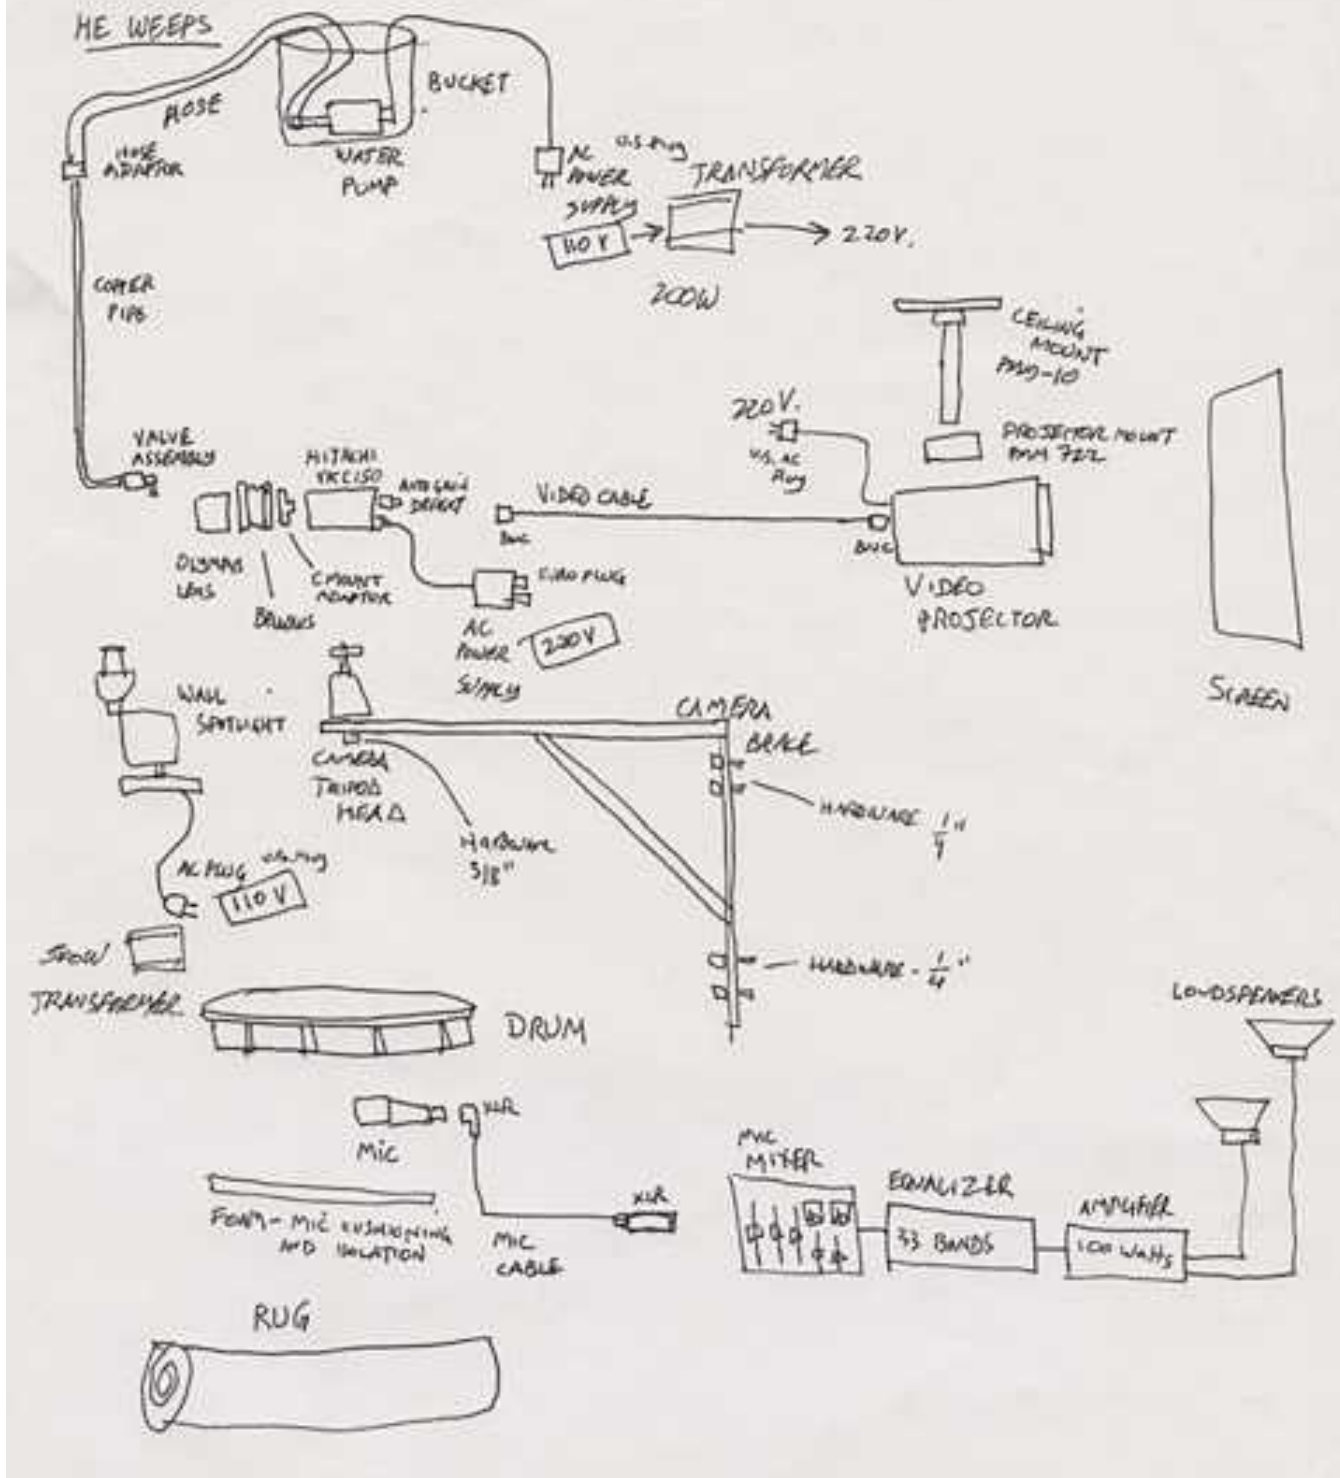 HE WEEPS
HOSE
BUCKET
HOSE
ADAPTOR
WATER
PUMP
AC
POWER
SUPPLY
U.S. Plug
TRANSFORMER
110 V
220 V.
200W
COPPER
PIPE
CEILING
MOUNT
PROJECTOR MOUNT
220 V.
U.S. AC
Plug
VALVE
ASSEMBLY
HITACHI
AUTO GAIN
VIDEO CABLE
BNC
BNC
OLYMPUS
LENS
BELLOWS
C MOUNT
ADAPTOR
EURO PLUG
AC
POWER
SUPPLY
220 V
VIDEO
PROJECTOR
SCREEN
WALL
SPOTLIGHT
CAMERA
TRIPOD
HEAD
CAMERA
BRACE
HARDWARE
3/8"
HARDWARE 1/4"
AC PLUG
U.S. Plug
110 V
TRANSFORMER
HARDWARE - 1/4"
DRUM
LOUDSPEAKERS
MIC
XLR
XLR
FOAM - MIC CUSHIONING
AND ISOLATION
MIC
CABLE
MIC
MIXER
EQUALIZER
33 BANDS
AMPLIFIER
100 WATTS
RUG